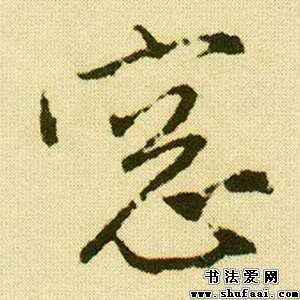 窓
书法爱网
www.shufaai.com